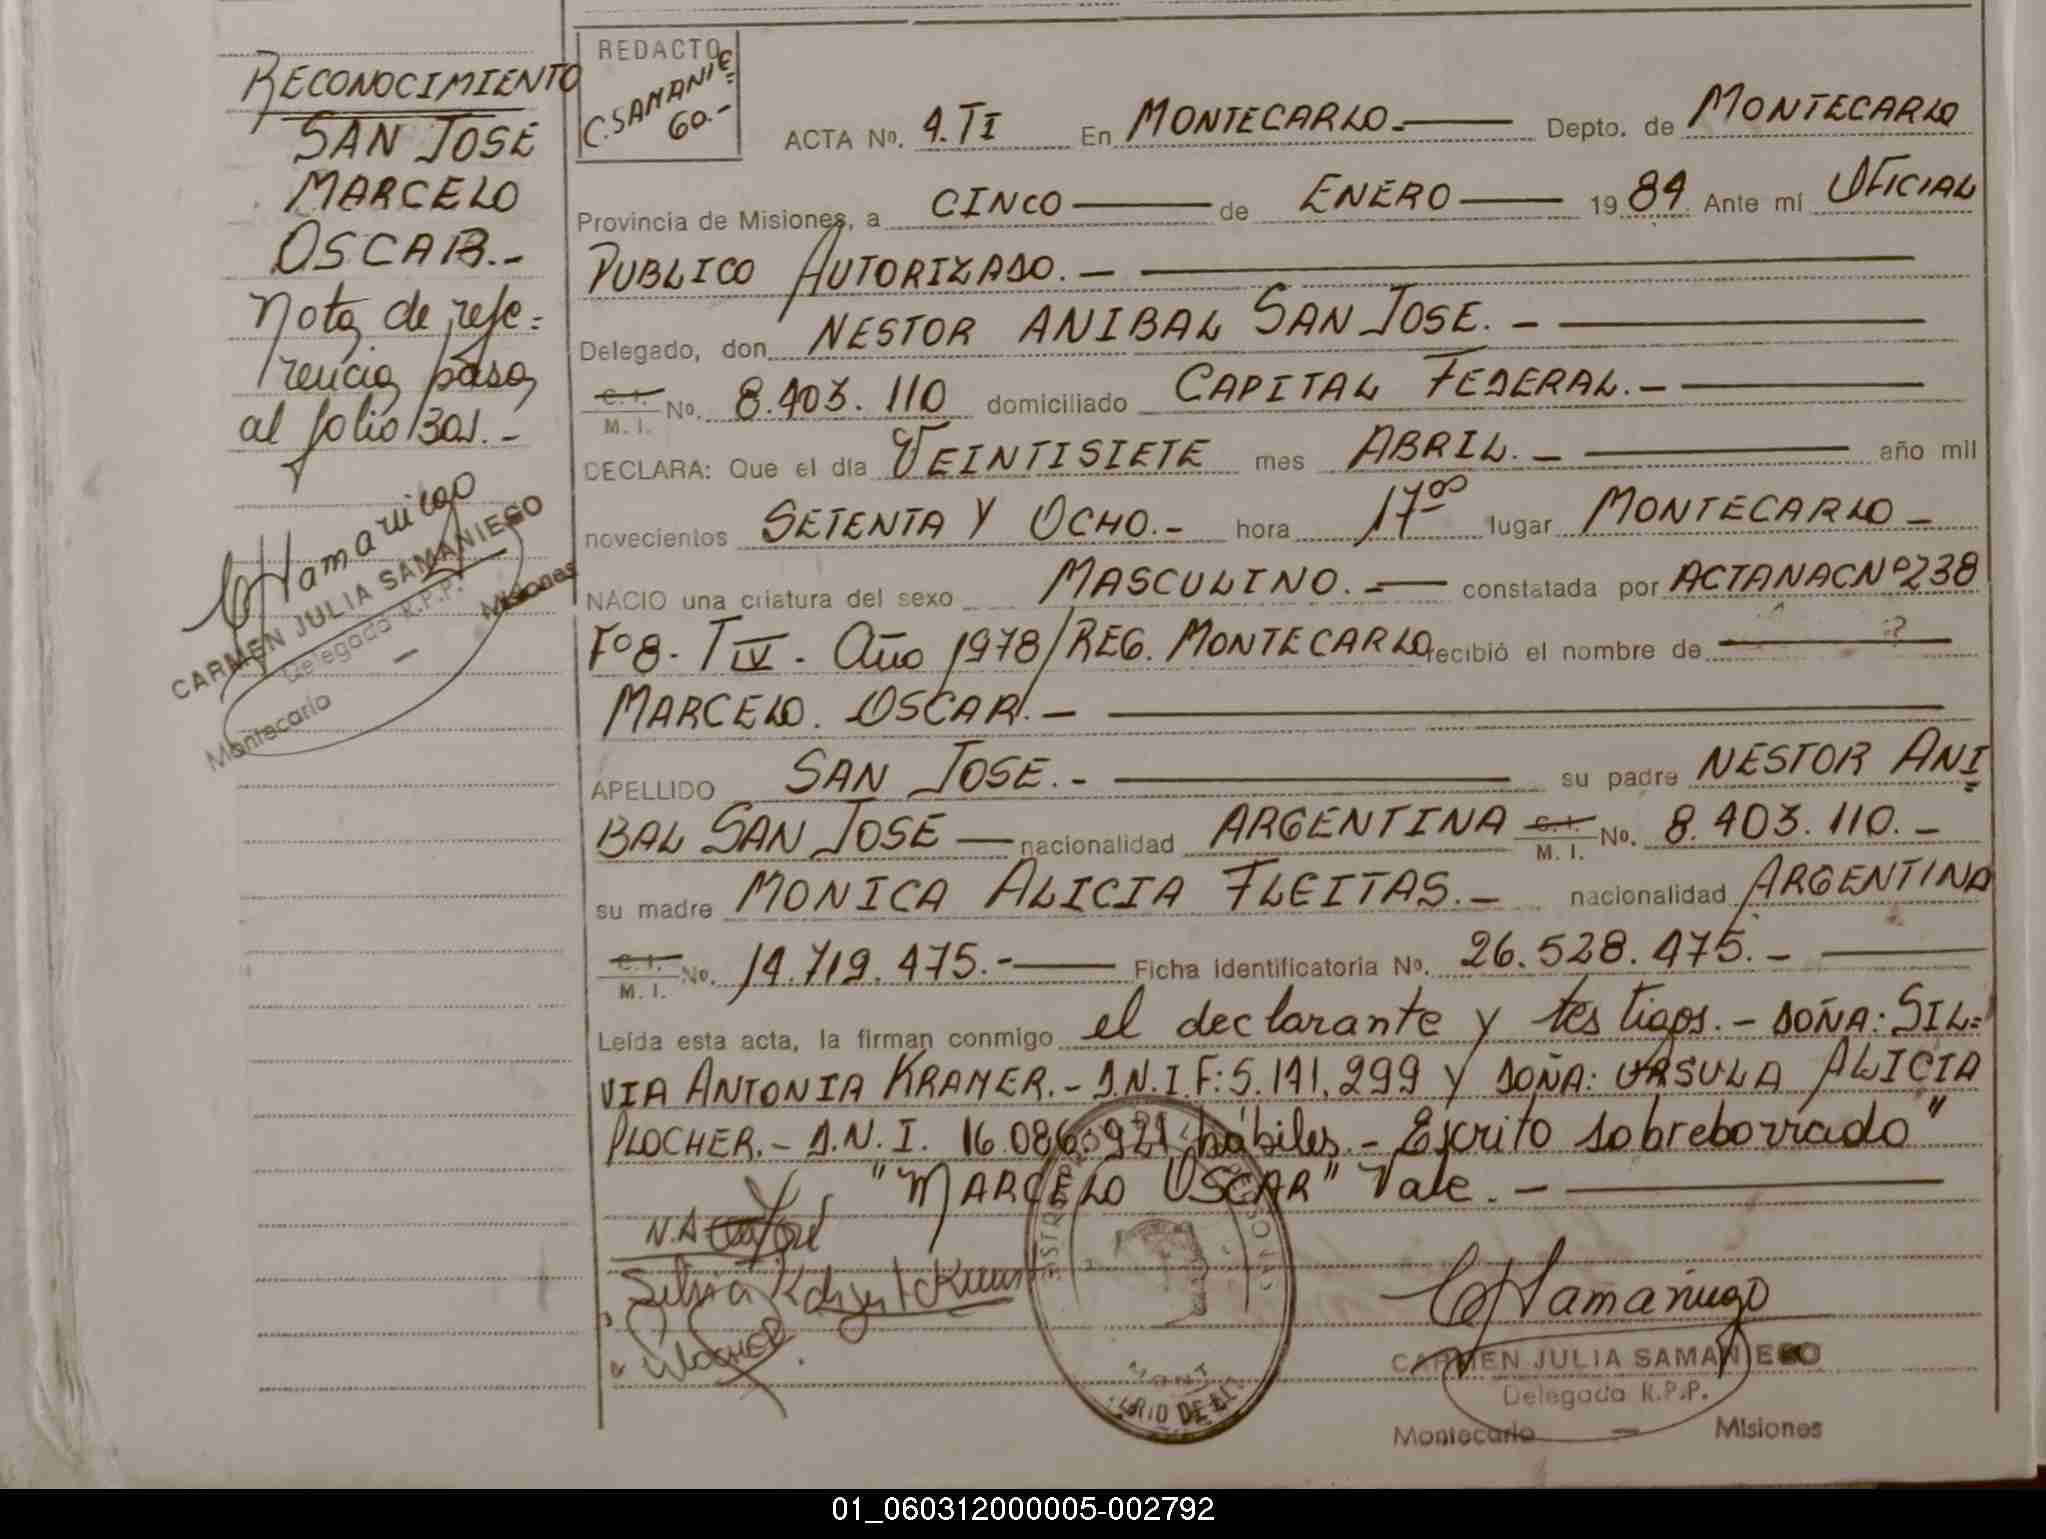 RECONOCIMIENTO
SAN JOSE
MARCELO
OSCAR.-
Nota de refe=
rencia pasa
al folio 301.-
CARMEN JULIA SAMANIEGO
Delegada R.P.P.
Montecarlo - Misiones
REDACTO
C. SAMANIE=
GO.-
ACTA No. 4. TI En MONTECARLO.- Depto. de MONTECARLO
Provincia de Misiones, a CINCO de ENERO 1984 Ante mí OFICIAL
PUBLICO AUTORIZADO.-
Delegado, don NESTOR ANIBAL SAN JOSE.-
C. I. M. I. No. 8.403.110 domiciliado CAPITAL FEDERAL.-
DECLARA: Que el día VEINTISIETE mes ABRIL.- año mil
novecientos SETENTA Y OCHO.- hora 17⁰⁰ lugar MONTECARLO-
NACIO una criatura del sexo MASCULINO.- constatada por ACTANACNº238
Fº8. TIV. Año 1978/REG. MONTECARLO recibió el nombre de ?
MARCELO. OSCAR.-
APELLIDO SAN JOSE.- su padre NESTOR ANI=
BAL SAN JOSE nacionalidad ARGENTINA C. I. M. I. No. 8.403.110.-
su madre MONICA ALICIA FLEITAS.- nacionalidad ARGENTINA
C. I. M. I. No. 14.719.475.- Ficha identificatoria No. 26.528.475.-
Leída esta acta, la firman conmigo el declarante y testigos.- DOÑA: SIL=
VIA ANTONIA KRAMER.- D.N.I. F: 5.141.299 y DOÑA: URSULA ALICIA
PLOCHER.- D.N.I. 16.086.921 hábiles.- Escrito sobreborrado"
"MARCELO OSCAR" Vale.-
CARMEN JULIA SAMANIEGO
Delegada R.P.P.
Montecarlo - Misiones
01_060312000005-002792